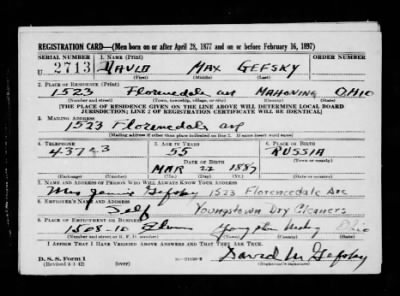 REGISTRATION CARD—(Men born on or after April 28, 1877 and on or before February 16, 1897)
SERIAL NUMBER 1. NAME (Print) ORDER NUMBER
U 2713 DAVID MAX GEFSKY
(First) (Middle) (Last)
2. PLACE OF RESIDENCE (Print)
1523 Florencedale av MAHONING OHIO
(Number and street) (Town, township, village, or city) (County) (State)
[THE PLACE OF RESIDENCE GIVEN ON THE LINE ABOVE WILL DETERMINE LOCAL BOARD
JURISDICTION; LINE 2 OF REGISTRATION CERTIFICATE WILL BE IDENTICAL]
3. MAILING ADDRESS
1523 Florencedale av
(Mailing address if other than place indicated on line 2. If same insert word same)
4. TELEPHONE 5. AGE IN YEARS 6. PLACE OF BIRTH
43723 55 RUSSIA
DATE OF BIRTH (Town or county)
MAR 22 1887
(Mo.) (Day) (Yr.) (State or country)
7. NAME AND ADDRESS OF PERSON WHO WILL ALWAYS KNOW YOUR ADDRESS
Gefsky 1523 Florencedale Ave
8. EMPLOYER'S NAME AND ADDRESS
Self Youngstown Dry Cleaners
9. PLACE OF EMPLOYMENT OR BUSINESS
1508-10 Elm Ohio
(Number and street or R. F. D. number) (Town) (County) (State)
I AFFIRM THAT I HAVE VERIFIED ABOVE ANSWERS AND THAT THEY ARE TRUE.
D. S. S. Form 1 David M Gefsky
(Revised 4-1-42) (over)